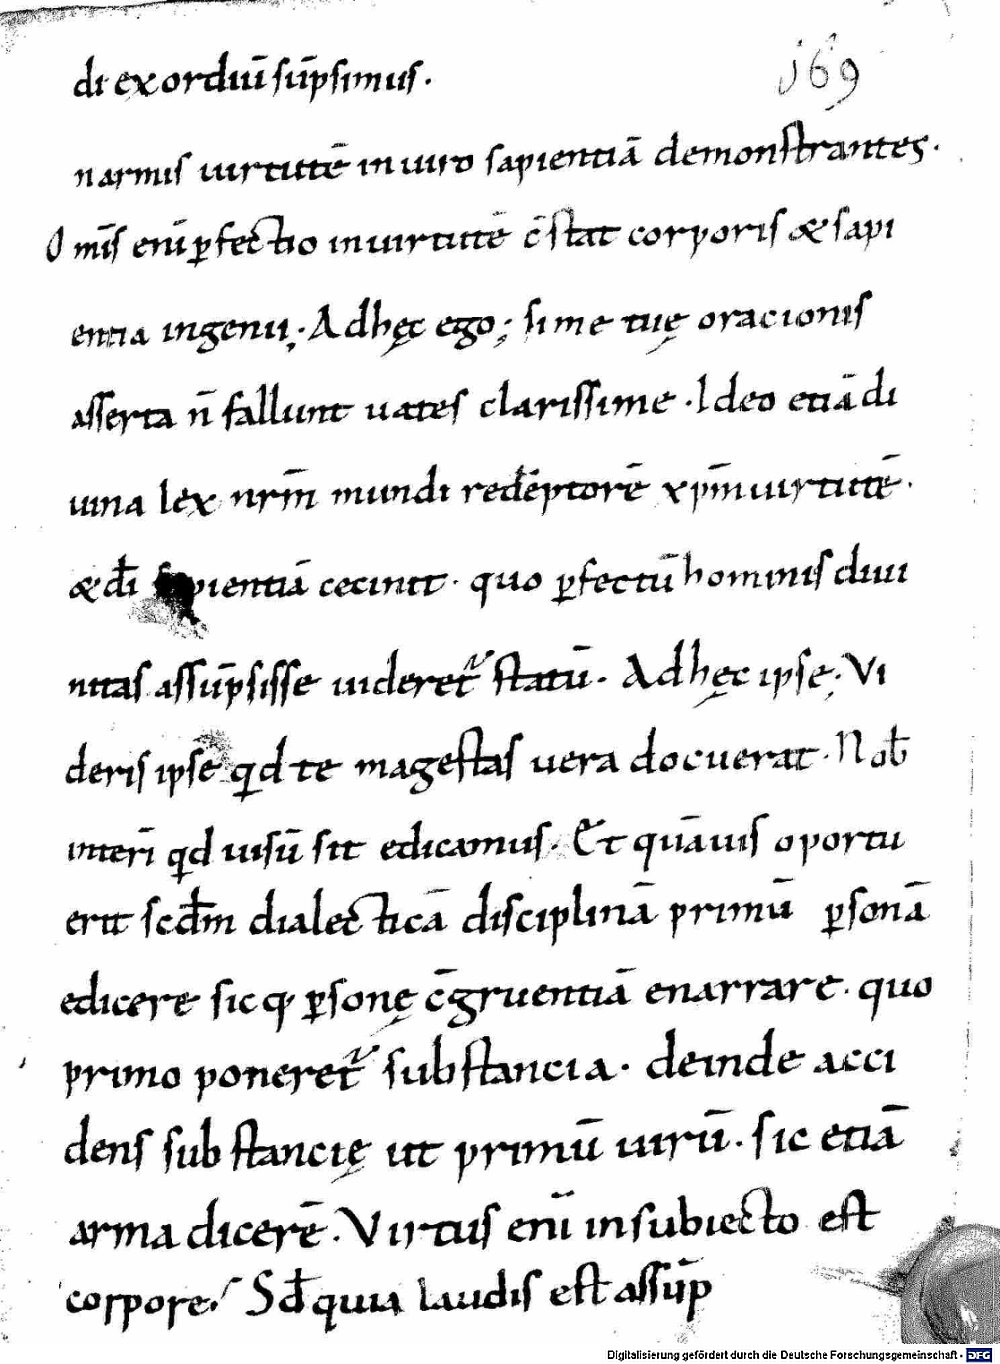 di exordiū sūpsimus.
169
n armis uirtutē in uiro sapientiā demonstrantes.
O mīs eni ꝑfectio in uirtute c̄stat corporis & sapi
entia ingenii; Ad hęc ego; si me tuę oracionis
asserta n̄ fallunt uates clarissime. Ideo etiā di
uina lex nrm̄ mundi redēptorē xpm̄ uirtutē.
& dī sapientiā cecinit. quo ꝑfectū hominis diui
nitas assūpsisse uideret᷑ statū. Ad hęc ipse; Vi
deris ipse qd te magestas uera docuerat. Nob̄
interī qd uisū sit edicamus. Et quāuis oportu
erit scdm̄ dialecticā disciplinā primū ꝑsonā
edicere sicq; ꝑsonę c̄gruentiā enarrare. quo
primo poneret᷑ substancia. deinde acci
dens substancię ut primū uirū. sic etiā
arma dicerē. Virtus enī in subiecto est
corpore. Sd̄ quia laudis est assūp
Digitalisierung gefördert durch die Deutsche Forschungsgemeinschaft - DFG